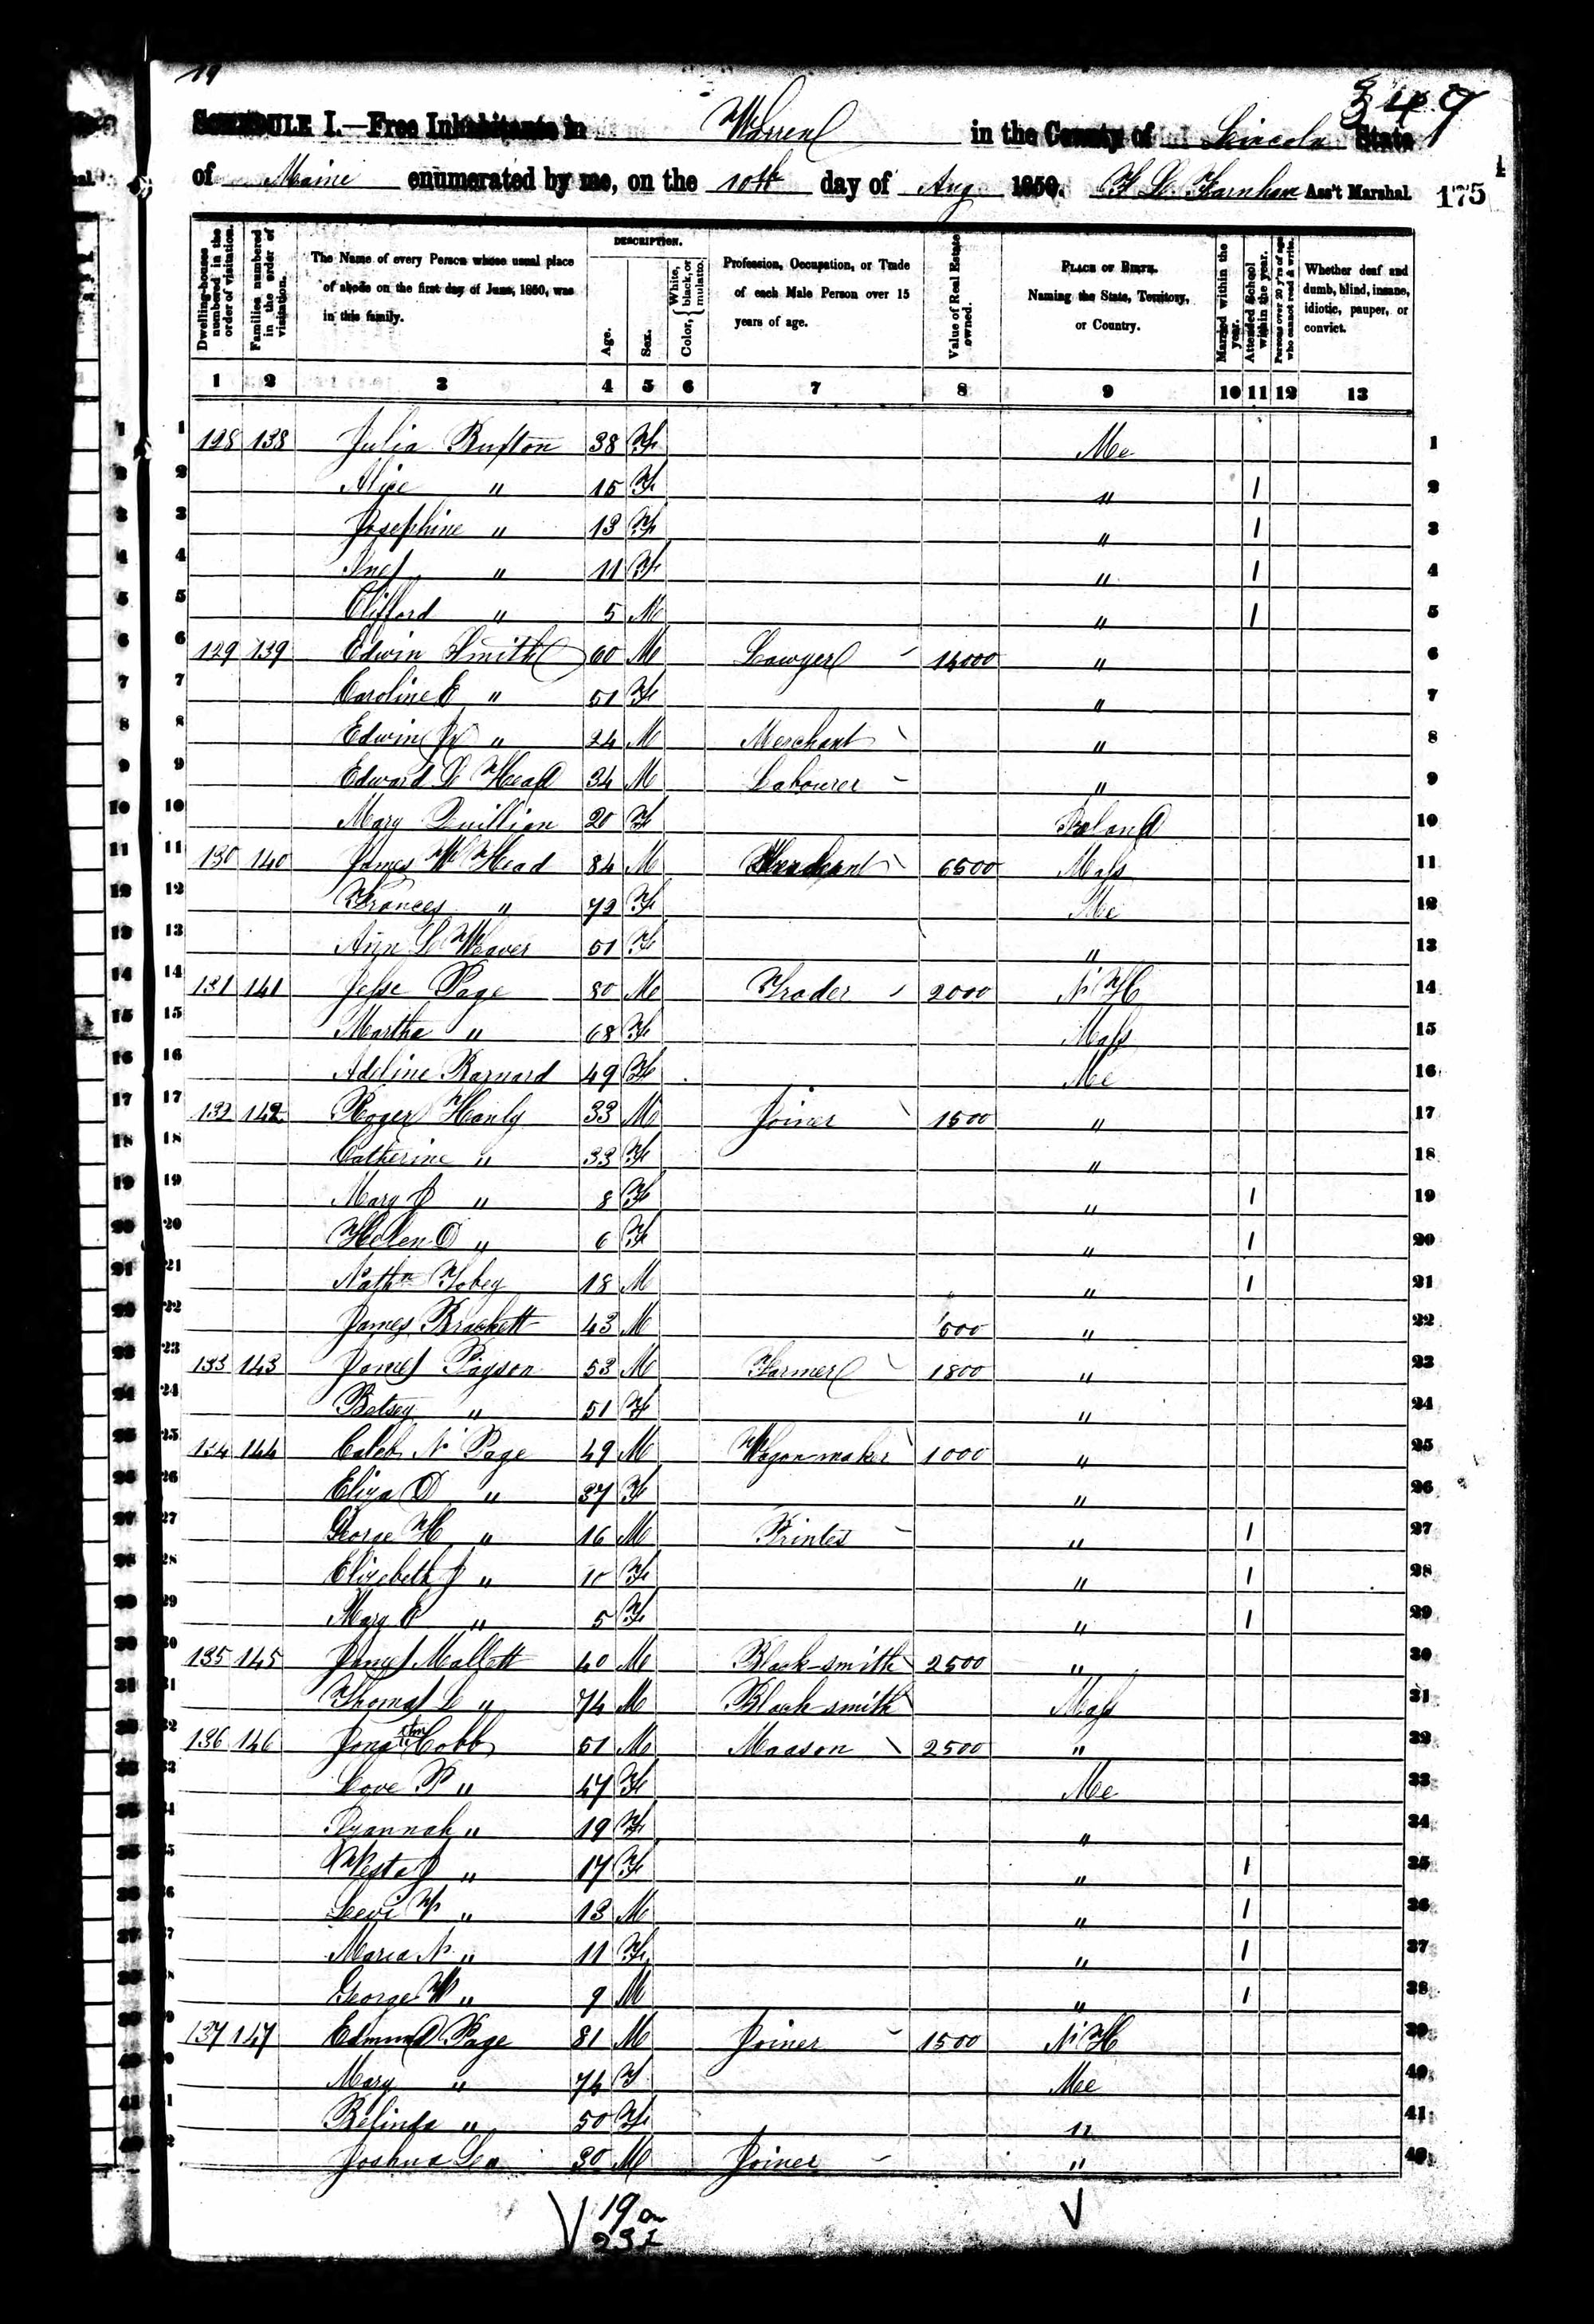 19
349
SCHEDULE I.—Free Inhabitants in Warren in the County of Lincoln State
of Maine enumerated by me, on the 10th day of Aug 1850. Farnham Ass't Marshal. 175
Dwelling-houses numbered in the order of visitation.
Families numbered in the order of visitation.
The Name of every Person whose usual place of abode on the first day of June, 1850, was in this family.
DESCRIPTION.
Age.
Sex.
Color, White, black, or mulatto.
Profession, Occupation, or Trade of each Male Person over 15 years of age.
Value of Real Estate owned.
PLACE OF BIRTH. Naming the State, Territory, or Country.
Married within the year.
Attended School within the year.
Persons over 20 y'rs of age who cannot read & write.
Whether deaf and dumb, blind, insane, idiotic, pauper, or convict.
1 2 3 4 5 6 7 8 9 10 11 12 13
1 128 138 Julia 38 F Me 1
2 Alice " 15 F " 1 2
3 Josephine " 13 F " 1 3
4 " 11 F " 1 4
5 Clifford " 5 M " 1 5
6 129 139 Edwin Smith 60 M Lawyer 14000 " 6
7 Caroline E " 51 F " 7
8 Edwin Jr " 24 M Merchant " 8
9 Edward Head 34 M Labourer " 9
10 Mary Quillian 20 F Ireland 10
11 130 140 James W Head 84 M Merchant 6500 Mass 11
12 Frances " 72 F Me 12
13 Ann L Weaver 51 F " 13
14 131 141 Jesse Page 80 M Trader 2000 N H 14
15 Martha " 68 F Mass 15
16 Adeline Barnard 49 F Me 16
17 132 142 Roger Hanly 33 M Joiner 1500 " 17
18 Catherine " 33 F " 18
19 Mary J " 8 F " 1 19
20 Helen O " 6 F " 1 20
21 Nathn Tobey 18 M " 1 21
22 James Brackett 43 M 500 " 22
23 133 143 James Payson 53 M Farmer 1800 " 23
24 Betsey " 51 F " 24
25 134 144 Caleb N Page 49 M Wagon maker 1000 " 25
26 Eliza D " 37 F " 26
27 George H " 16 M Printer " 1 27
28 Elizebeth J " 10 F " 1 28
29 Mary E " 5 F " 1 29
30 135 145 James Mallett 40 M Black-smith 2500 " 30
31 Thomas L " 74 M Black-smith Mass 31
32 136 146 Jonathn Cobb 51 M Maason 2500 " 32
33 Love P " 47 F Me 33
34 " 19 F " 34
35 Vesta J " 17 F " 1 35
36 Levi " 13 M " 1 36
37 Maria N " 11 F " 1 37
38 George W " 9 M " 1 38
39 137 147 Edmund Page 81 M Joiner 1500 N H 39
40 Mary " 74 F Me 40
41 Belinda " 50 F " 41
42 Joshua 30 M Joiner " 42
19
23